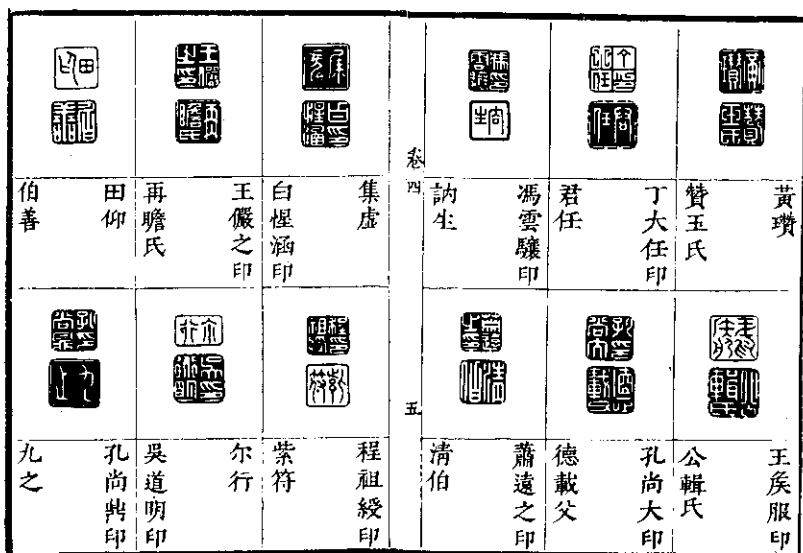 黃瓚
贊玉氏
丁大任印
君任
馮雲驤印
訥生
王矦服印
公輯氏
孔尚大印
德載父
蕭遠之印
清伯
卷四
五
集虛
白惺涵印
王儼之印
再瞻氏
田仰
伯善
程祖綬印
紫符
尒行
吳道明印
孔尚典印
九之